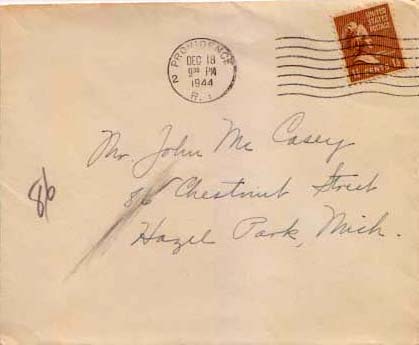 PROVIDENCE
2
DEC 18
9 30 PM
1944
R. I.
UNITED STATES
POSTAGE
1½ CENTS 1½
Mr. John Mc Casey
86 Chestnut Street
Hazel Park, Mich.
86